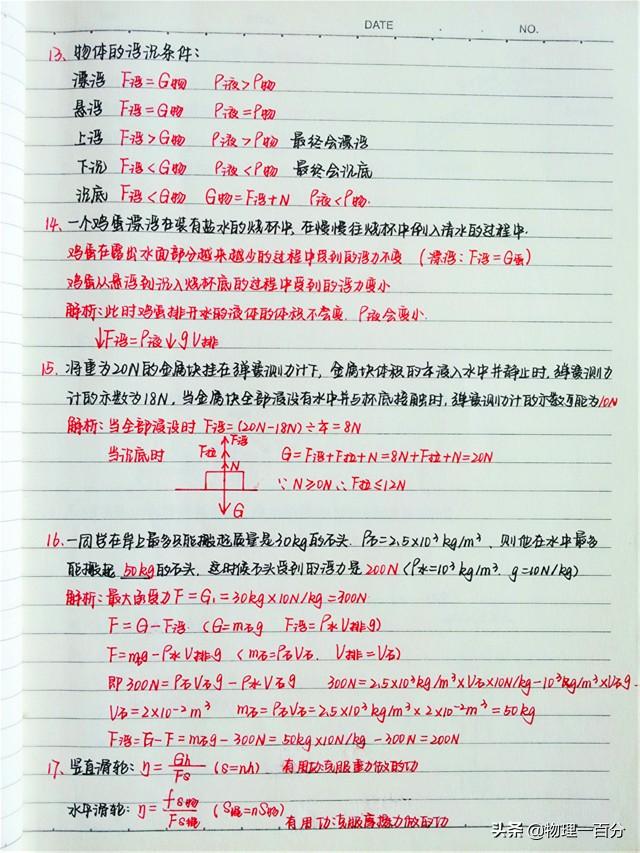 DATE
NO.
13、物体的浮沉条件：
漂浮 F浮=G物 ρ液>ρ物
悬浮 F浮=G物 ρ液=ρ物
上浮 F浮>G物 ρ液>ρ物 最终会漂浮
下沉 F浮<G物 ρ液<ρ物 最终会沉底
沉底 F浮<G物 G物=F浮+N ρ液<ρ物.
14、一个鸡蛋漂浮在装有盐水的烧杯中, 在慢慢往烧杯中倒入清水的过程中.
鸡蛋在露出水面部分越来越少的过程中受到的浮力不变 (漂浮：F浮=G蛋)
鸡蛋从悬浮到沉入烧杯底的过程中受到的浮力变小
解析：此时鸡蛋排开水的液体的体积不会变. ρ液会变小.
↓F浮=ρ液↓gV排
15、将重为20N的金属块挂在弹簧测力计下, 金属块体积的¼浸入水中并静止时, 弹簧测力
计的示数为18N, 当金属块全部浸没有水中并与杯底接触时, 弹簧测力计的示数可能为10N
解析：当全部浸没时 F浮=(20N-18N)÷¼=8N
F浮
当沉底时 F拉 G=F浮+F拉+N=8N+F拉+N=20N
N
∵N≥0N ∴F拉≤12N
G
16、一同学在岸上最多只能搬起质量是30kg的石头. ρ石=2.5×10³kg/m³、则他在水中最多
能搬起 50kg的石头, 这时候石头受到的浮力是 200N (ρ水=10³kg/m³. g=10N/kg)
解析：最大承受力 F=G₁=30kg×10N/kg=300N
F=G-F浮 (G=m石g F浮=ρ水V排g)
F=m石g-ρ水V排g (m石=ρ石V石. V排=V石)
即300N=ρ石V石g-ρ水V石g 300N=2.5×10³kg/m³×V石×10N/kg-10³kg/m³×V石g.
V石=2×10⁻²m³ m石=ρ石V石=2.5×10³kg/m³×2×10⁻²m³=50kg
F浮=G-F=m石g-300N=50kg×10N/kg-300N=200N
17、竖直滑轮：η=Gh/Fs (s=nh). 有用功克服重力做的功
水平滑轮：η=fs物/Fs绳 (s绳=ns物) 有用功克服摩擦力做的功
头条 @物理一百分